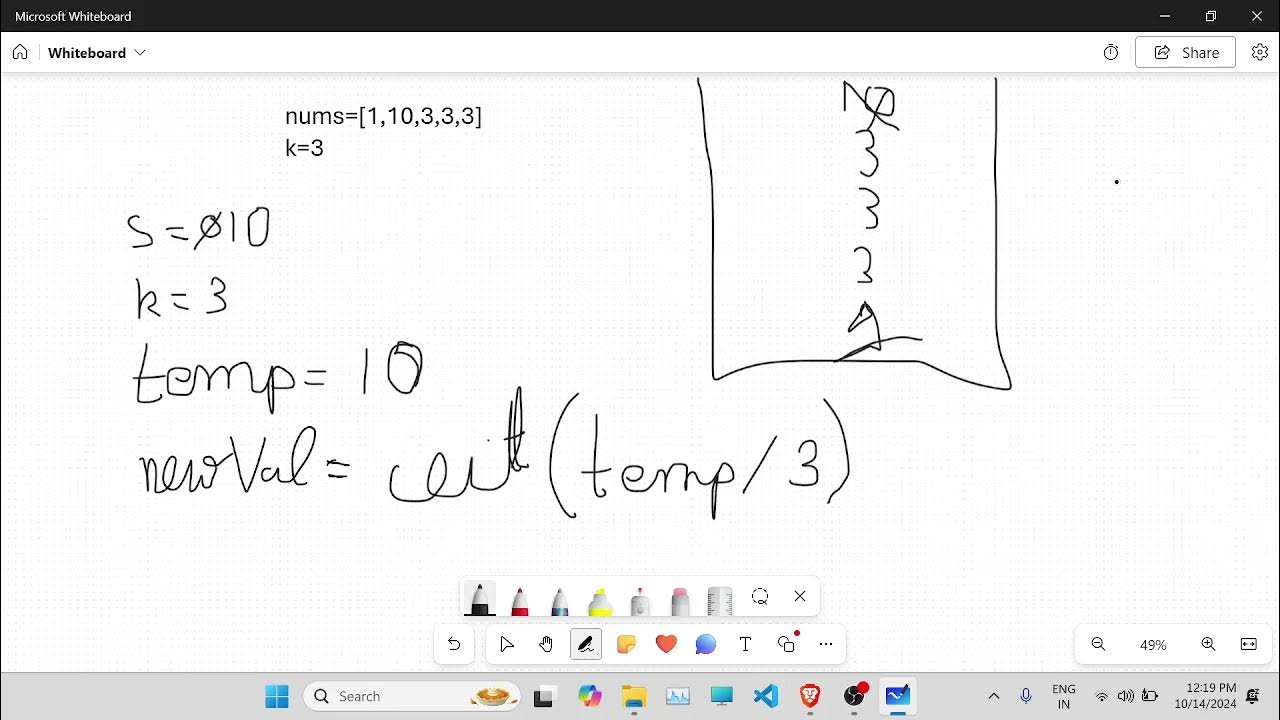 Microsoft Whiteboard
Whiteboard
Share
nums=[1,10,3,3,3]
k=3
3
3
3
s = 0 10
k = 3
temp = 10
newVal = ceil (temp / 3)
T
49%
Search
ENG
IN
12:19 PM
10/14/2024